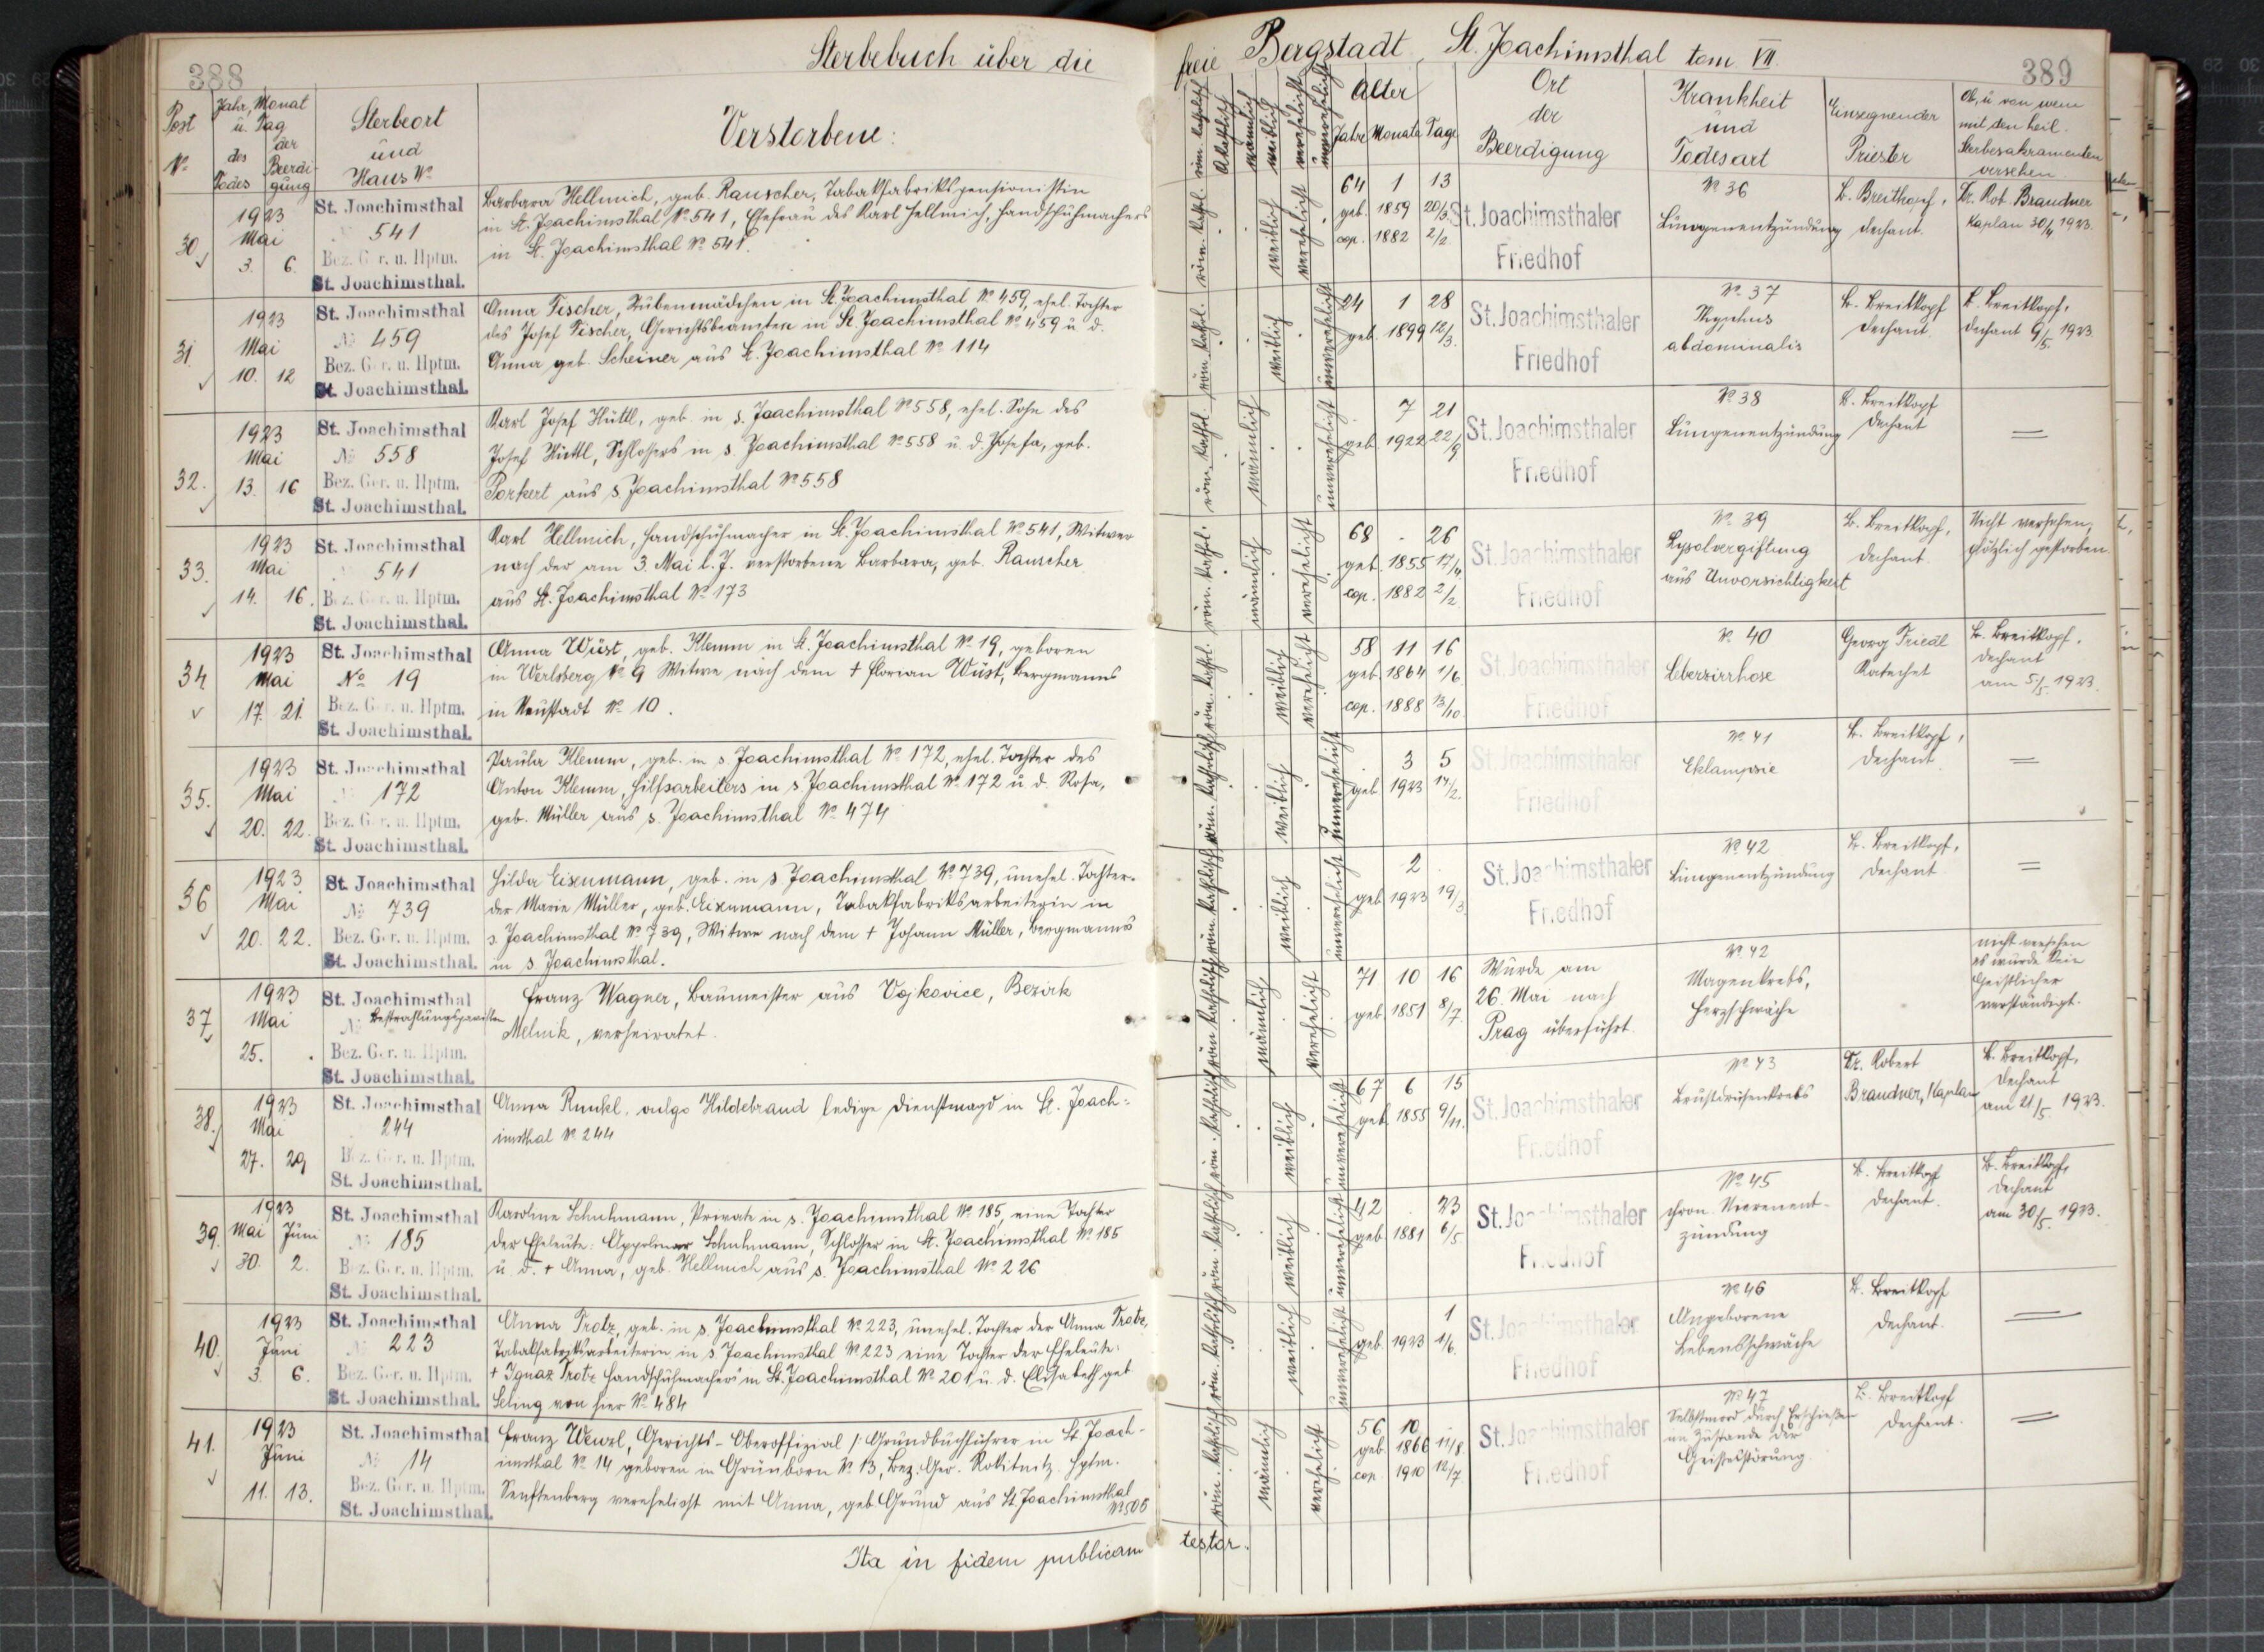 388
Sterbebuch über die
Post
No
Jahr, Monat
u. Tag
des
Todes
der
Beerdi-
gung
Sterbeort
und
Haus No
Verstorbene:
30.
1923
Mai
3. 6.
St. Joachimsthal
541
Bez. Ger. u. Hptm.
St. Joachimsthal.
Barbara Hellmich, geb. Rauscher, Tabakfabrikspensionistin
in St. Joachimsthal No 541, Ehefrau des Karl Hellmich, Handschuhmachers
in St. Joachimsthal No 541.
31.
1923
Mai
10. 12
St. Joachimsthal
No 459
Bez. Ger. u. Hptm.
St. Joachimsthal.
Anna Fischer, Stubenmädchen in St. Joachimsthal No 459, ehel. Tochter
des Josef Fischer, Gerichtsbeamten in St. Joachimsthal No 459 u. d.
Anna geb. Scheiner aus St. Joachimsthal No 114
32.
1923
Mai
13. 16
St. Joachimsthal
No 558
Bez. Ger. u. Hptm.
St. Joachimsthal.
Karl Josef Hüttl, geb. in s. Joachimsthal No 558, ehel. Sohn des
Josef Hüttl, Schlossers in s. Joachimsthal No 558 u. d. Josefa, geb.
Porkert aus s. Joachimsthal No 558
33.
1923
Mai
14. 16.
St. Joachimsthal
541
Bez. Ger. u. Hptm.
St. Joachimsthal.
Karl Hellmich, Handschuhmacher in St. Joachimsthal No 541, Witwer
nach der am 3. Mai l. J. verstorbene Barbara, geb. Rauscher
aus St. Joachimsthal No 173
34
1923
Mai
17. 21.
St. Joachimsthal
No 19
Bez. Ger. u. Hptm.
St. Joachimsthal.
Anna Wüst, geb. Klemm in St. Joachimsthal No 19, geboren
in Werlsberg No 9 Witwe nach dem + Florian Wüst, Bergmanns
in Neustadt No 10.
35.
1923
Mai
20. 22.
St. Joachimsthal
172
Bez. Ger. u. Hptm.
St. Joachimsthal.
Paula Klemm, geb. in s. Joachimsthal No 172, ehel. Tochter des
Anton Klemm, Hilfsarbeiters in s. Joachimsthal No 172 u. d. Rosa,
geb. Müller aus s. Joachimsthal No 474
36
1923.
Mai
20. 22.
St. Joachimsthal
No 739
Bez. Ger. u. Hptm.
St. Joachimsthal.
Hilda Eisenmann, geb. in s. Joachimsthal No 739, unehel. Tochter
der Marie Müller, geb. Eisenmann, Tabakfabriksarbeiterin in
s. Joachimsthal No 739, Witwe nach dem + Johann Müller, Bergmanns
in s. Joachimsthal.
37
1923
Mai
25. .
St. Joachimsthal
No
Bez. Ger. u. Hptm.
St. Joachimsthal.
Franz Wagner, Baumeister aus Vojkovice, Bezirk
Melnik, verheiratet.
38.
1923
Mai
27. 29
St. Joachimsthal
244
Bez. Ger. u. Hptm.
St. Joachimsthal.
Anna Runkl, vulgo Hildebrand ledige Dienstmagd in St. Joach-
imsthal No 244
39.
1923
Mai Juni
30. 2.
St. Joachimsthal
No 185
Bez. Ger. u. Hptm.
St. Joachimsthal.
Karoline Schuhmann, Private in s. Joachimsthal No 185, eine Tochter
der Eheleute: Schuhmann, Schlosser in St. Joachimsthal No 185
u. d. + Anna, geb. Hellmich aus s. Joachimsthal No 226
40.
1923
Juni
3. 6.
St. Joachimsthal
223
Bez. Ger. u. Hptm.
St. Joachimsthal.
Anna Trotz, geb. in s. Joachimsthal No 223, unehel. Tochter der Anna Trotz,
Tabakfabriksarbeiterin in s. Joachimsthal No 223 eine Tochter der Eheleute:
+ Ignaz Trotz Handschuhmachers in St. Joachimsthal No 201 u. d. Elisabeth geb
von hier No 484
41.
1923
Juni
11. 13.
St. Joachimsthal
No 14
Bez. Ger. u. Hptm.
St. Joachimsthal.
Franz Wenzl, Gerichts-Oberoffizial /: Grundbuchführer in St. Joach-
imsthal No 14 geboren in Grünborn No 13, Bez. Ger. Rokitnitz Hptm.
Senftenberg verehelicht mit Anna, geb. Grund aus St. Joachimsthal
No 505
Ita in fidem publicam
freie Bergstadt St. Joachimsthal tom. VII.
389
röm. katholisch
männlich
weiblich
verehelicht
unverehelicht
Alter
Jahre Monate Tage
Ort
der
Beerdigung
Krankheit
und
Todesart
Einsegnender
Priester
Ob, u. von wem
mit den heil.
Sterbesakramenten
versehen
röm. kathol. weiblich verehelicht
64 1 13
geb. 1859 20/3.
cop. 1882 2/2.
St. Joachimsthaler
Friedhof
No 36
Lungenentzündung
B. Breitkopf,
Dechant.
Dr. Rob. Brandner
Kaplan 30/4 1923.
röm. kathol. weiblich unverehelicht
24 1 28
geb. 1899 12/3.
St. Joachimsthaler
Friedhof
No 37
Thyphus
abdominalis
B. Breitkopf
Dechant.
B. Breitkopf,
Dechant 9/5. 1923.
röm. kathol. männlich unverehelicht
7 21
geb. 1922 22/9
St. Joachimsthaler
Friedhof
No 38
Lungenentzündung
B. Breitkopf
Dechant
röm. kathol. männlich verehelicht
68 . 26
geb. 1855 17/4.
cop. 1882 2/2
St. Joachimsthaler
Friedhof
No 39
Lysolvergiftung
aus Unvorsichtigkeit
B. Breitkopf,
Dechant.
Nicht versehen,
plötzlich gestorben.
röm. kathol. weiblich verehelicht
58 11 16
geb. 1864 1/6.
cop. 1888 13/10.
St. Joachimsthaler
Friedhof
No 40
Leberzirrhose
Georg Friedl
Katechet
B. Breitkopf,
Dechant
am 5/5. 1923.
röm. katholisch weiblich unverehelicht
3 5
geb. 1923 14/2.
St. Joachimsthaler
Friedhof
No 41
Eklampsie
B. Breitkopf,
Dechant.
röm. katholisch weiblich unverehelicht
2
geb. 1923 19/3
St. Joachimsthaler
Friedhof
No 42
Lungenentzündung
B. Breitkopf,
Dechant.
röm. katholisch männlich verehelicht
71 10 16
geb. 1851 8/7.
Wurde am
26. Mai nach
Prag überführt.
No 42
Magenkrebs,
Herzschwäche
nicht versehen
es wurde kein
Geistlicher
verständigt.
röm. katholisch weiblich unverehelicht
67 6 15
geb. 1855 9/11.
St. Joachimsthaler
Friedhof
No 43
Brustdrüsenkrebs
Dr. Robert
Brandner, Kaplan
B. Breitkopf,
Dechant
am 21/5. 1923.
röm. katholisch weiblich unverehelicht
42 . 23
geb. 1881 6/5
St. Joachimsthaler
Friedhof
No 45
chron. Nierenent-
zündung
B. Breitkopf
Dechant.
B. Breitkopf,
Dechant
am 30/5. 1923.
röm. katholisch weiblich unverehelicht
1
geb. 1923 1/6.
St. Joachimsthaler
Friedhof
No 46
Angeborene
Lebensschwäche
B. Breitkopf
Dechant.
röm. katholisch männlich verehelicht
56 10 -
geb. 1866 11/8.
cop 1910 12/7
St. Joachimsthaler
Friedhof
No 47
Selbstmord durch Erschießen
im Zustande der
Geistesstörung.
B. Breitkopf
Dechant.
testor.